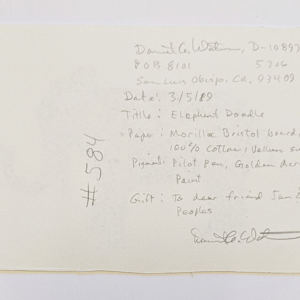 Daniel G. Watson, D-10897
POB 8101 5206
San Luis Obispo, Ca. 93409
Date: 3/5/89
Title: Elephant Doodle
Paper: Morilla Bristol board,
100% Cotton, Vellum su
Pigment: Pilot Pen, Golden acr
Paint
Gift: To dear friend Jan &
Peoples
#584